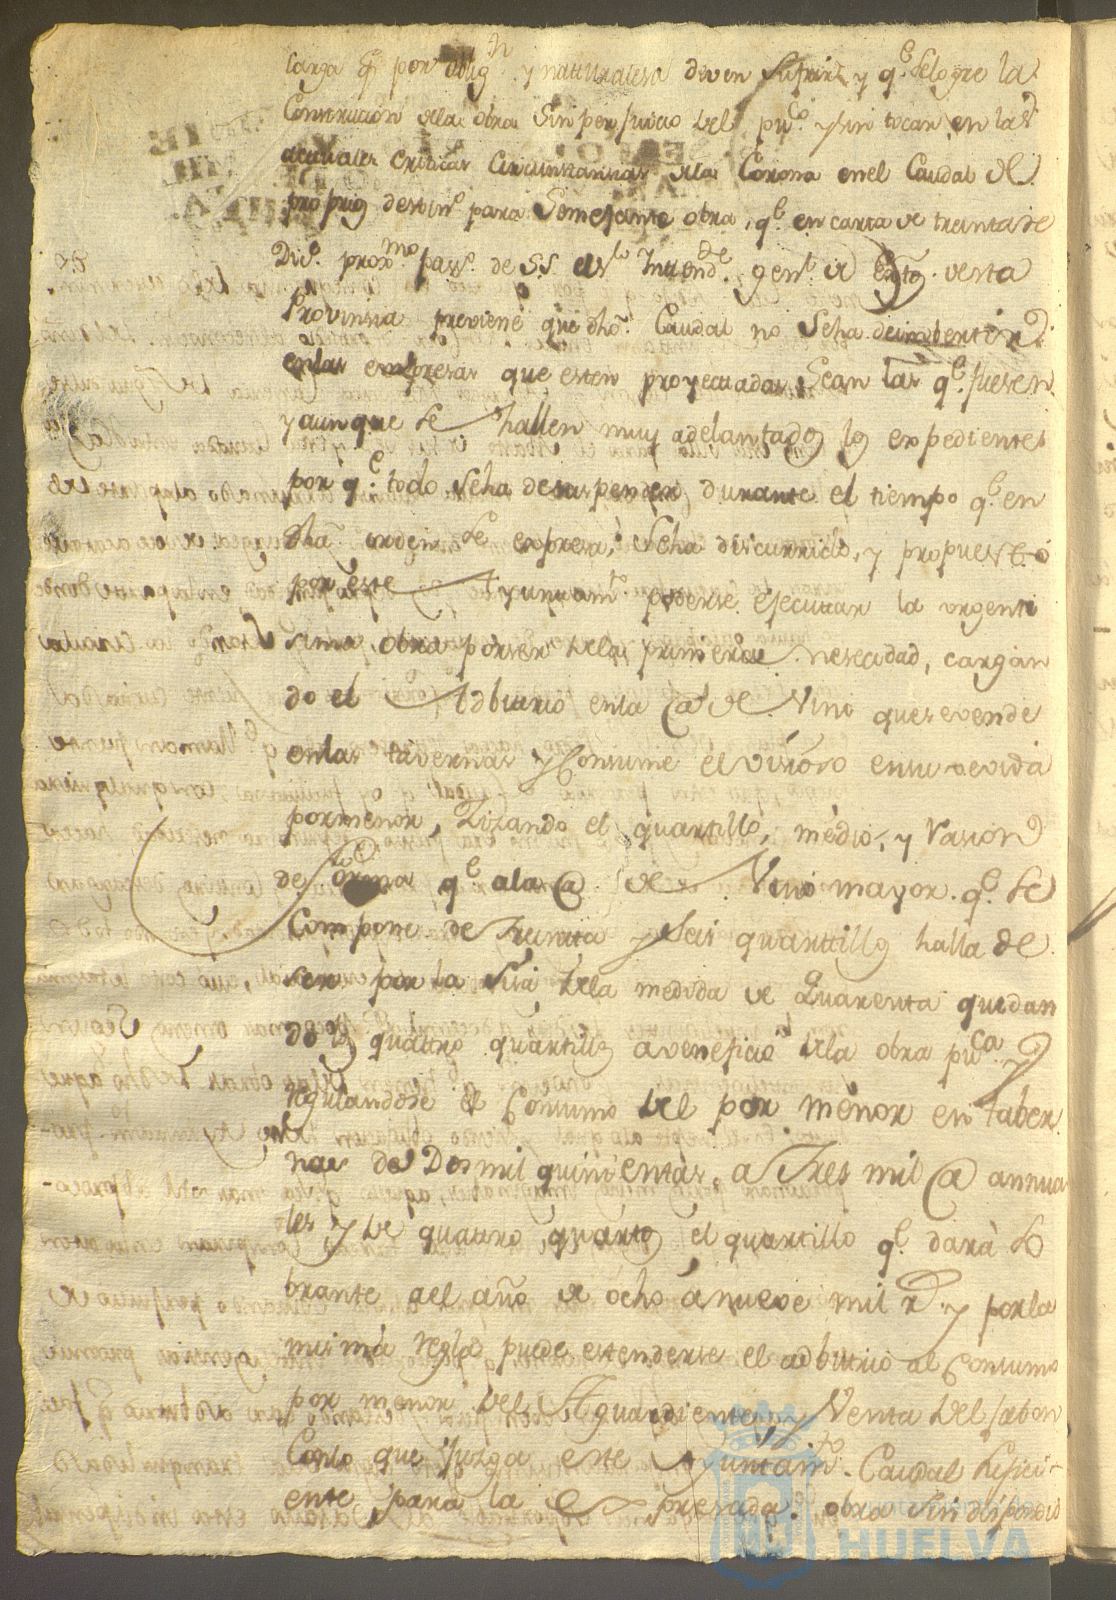 carga q.e por oblig.n y naturalesa deven sufrir y q.e selogre la
Construccion dela obra sin perjuicio del pu.co y sin tocar en las
actuales criticas circunstansias dela Corona en el Caudal de
propios destin.o para Semejante obra, q.e en carta de treinta de
Dic.e prox.mo pass.o de S.S. el S.r Intend.te gen.l de Exto desta
Provinsia previene que dho Caudal no Seha deimbertir
enlas empresas que esten proyectadas, sean las q.e fuesen
y aunque se hallen muy adelantados los expedientes
por q.e todo Seha desuspender durante el tiempo q.e en
dha orden se expresa, Seha discurrido, y propuesto
por este Ayuntam.to poderse ejecutar la urgenti
sima obra por ser dela primera nesecidad, cargan
do el Adbitrio enla @ de Vino quesevende
enlas tavernas y Consume el visioso ensu vevida
pormenor, Zizando el quartillo, medio, y racion
de forma q.e ala @ de Vino mayor q.e se
Compone de Treinta y Seis quartillos halla de
ser por la Sisa dela medida de Quarenta quedan
do los quattro quartillos aveneficio dela obra pu.ca y
regulandose el Consumo del por menor en taber
nas de Dos mil quinientas, a Tres mil @ annua
les y de quattro quartos el quartillo q.e darà so
brante al año de ocho á nueve mil r.s y por la
misma regla puede estenderse el adbitrio al Consumo
por menor del Aguardiente, y Venta del Jabon
Conlo que Juzga este Ayuntam.to Caudal sufici-
ente para la Expresada obra sin dispendio
HUELVA